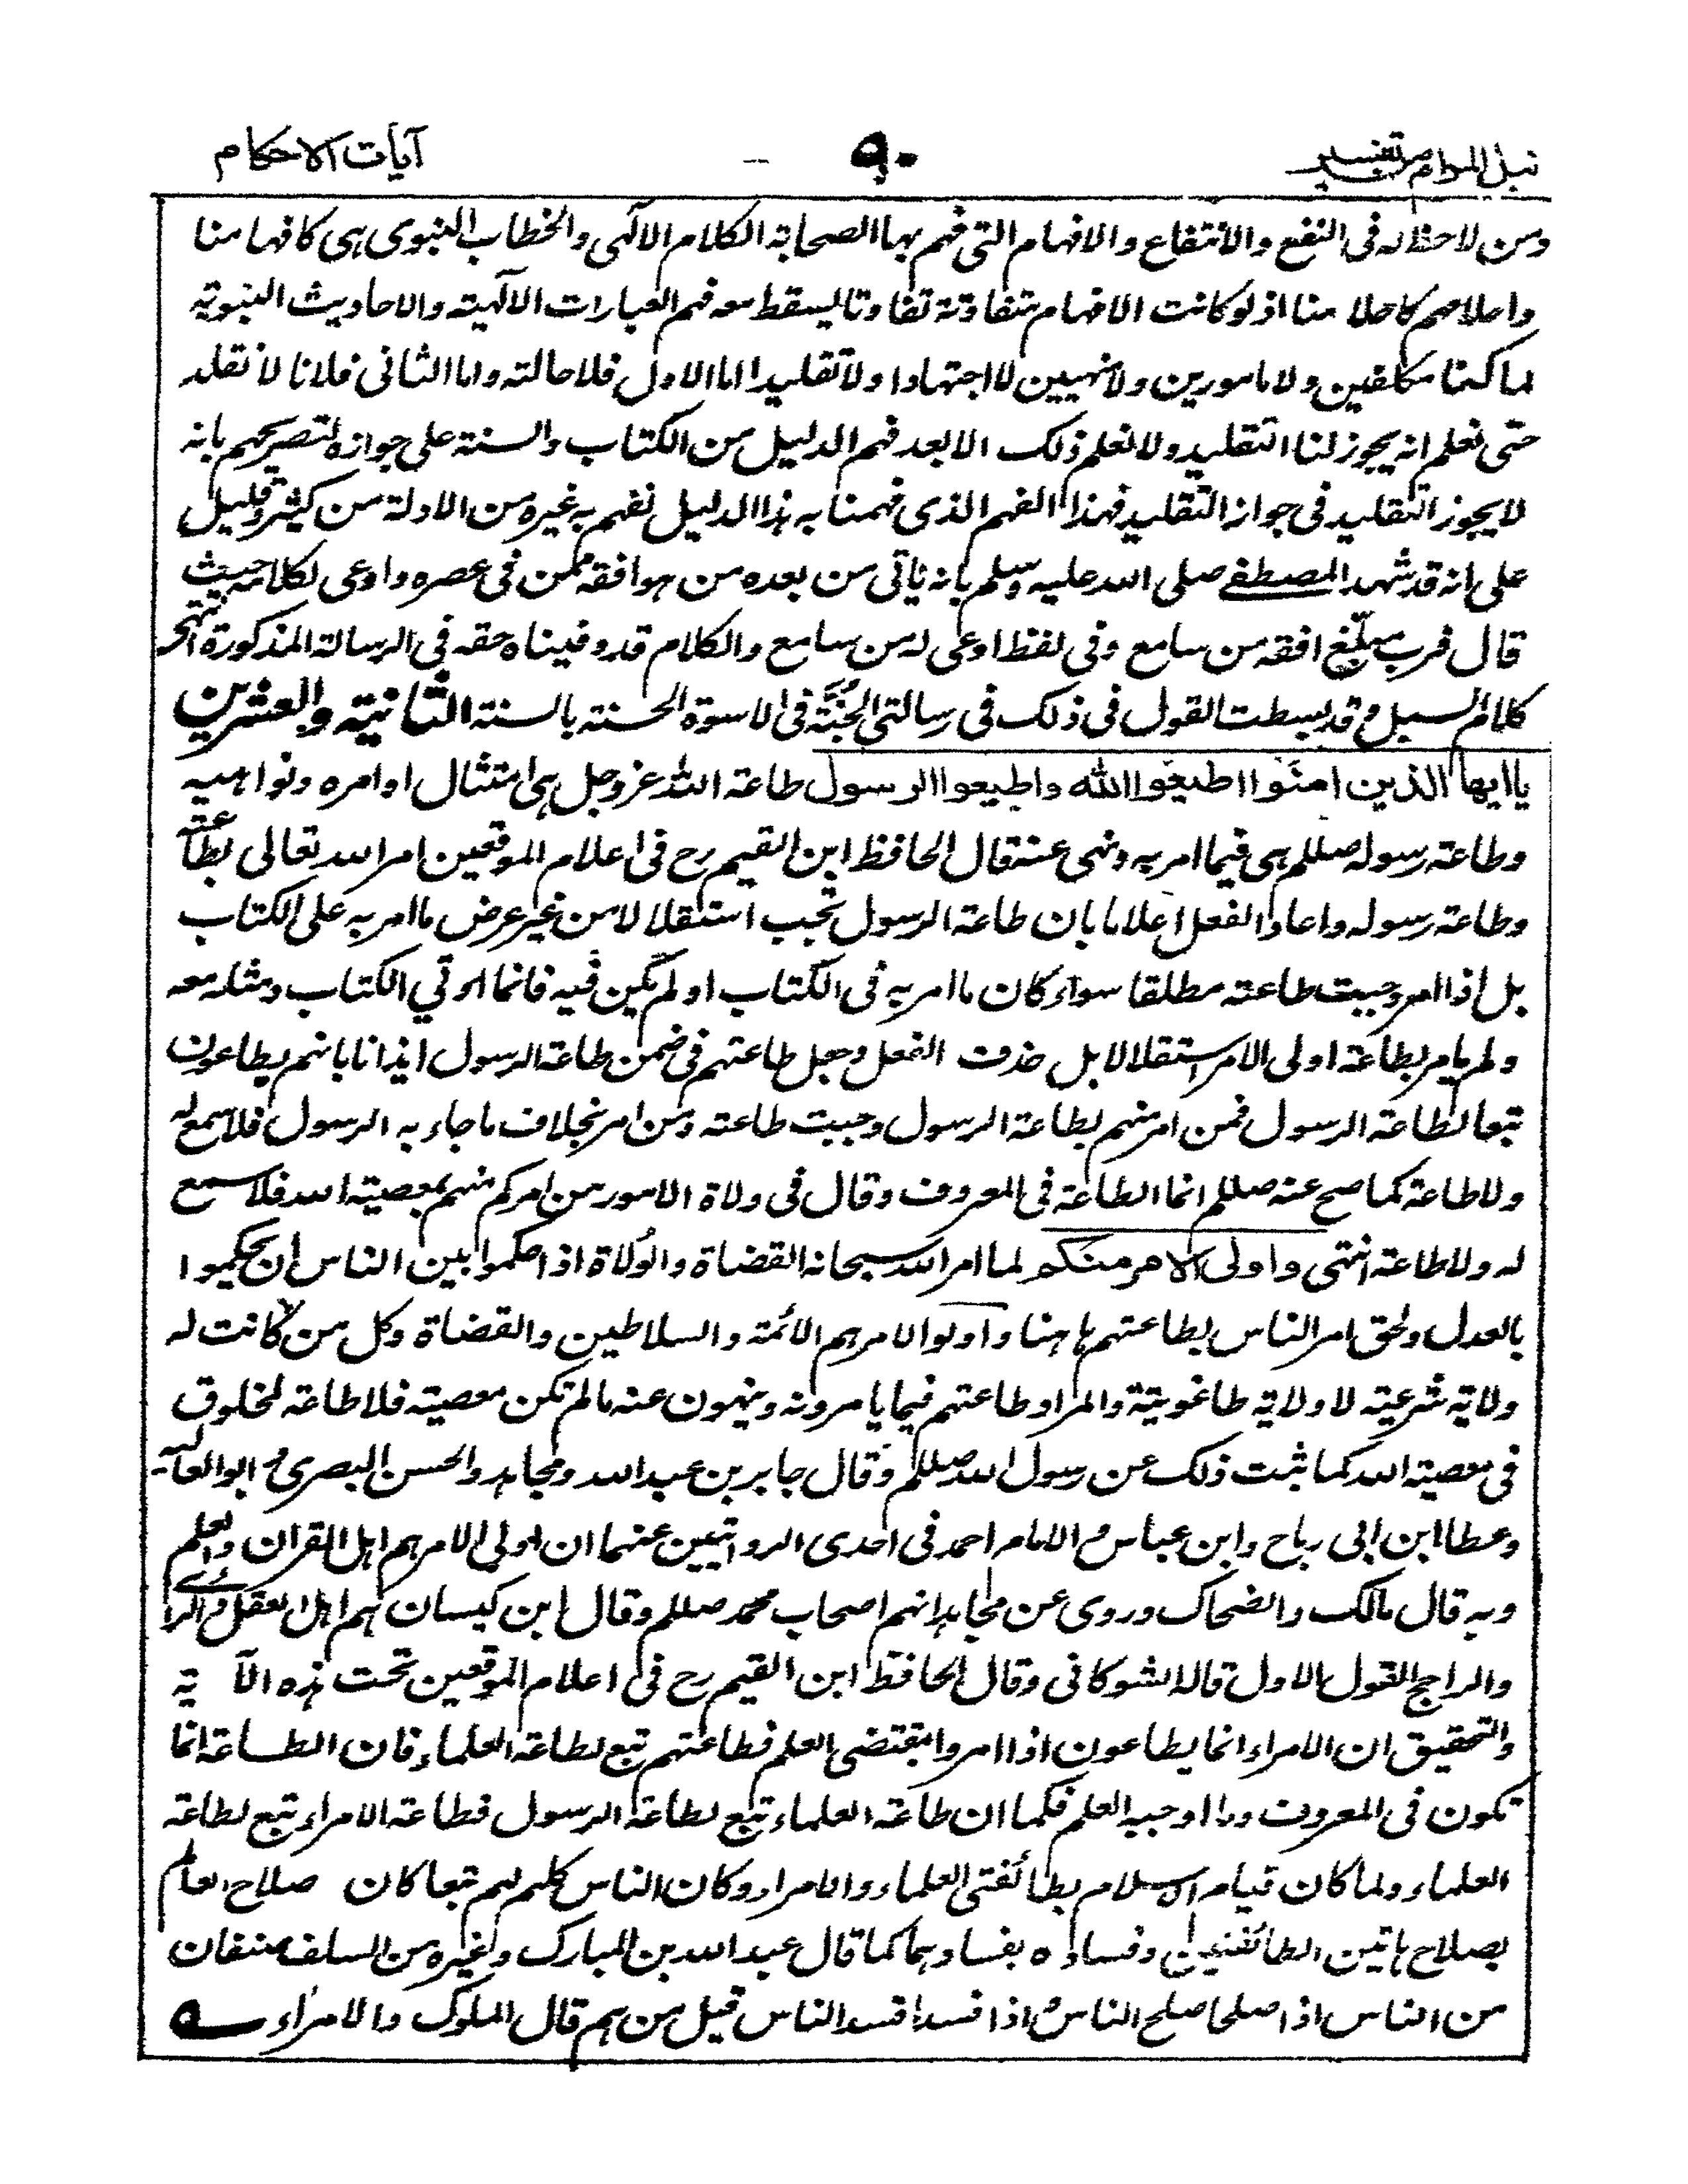 نيل المرام من تفسير ٩٠ آيات الاحكام
ومن لاحظ له فى النفع والانتفاع والافهام التى فهم بها الصحابة الكلام الالٰهى والخطاب النبوى هى كافهامنا
واحلامهم كاحلامنا اذ لو كانت الافهام متفاوتة تفاوتا يسقط معه فهم العبارات الالٰهية والاحاديث النبوية
لما كنا مكلفين ولا مامورين ولا منهيين لا اجتهادا ولا تقليدا اما الاول فلاحالته واما الثانى فلانا لا نقلد
حتى نعلم انه يجوز لنا التقليد ولا نعلم ذلك الا بعد فهم الدليل من الكتاب والسنة على جوازه لتصريحهم بانه
لا يجوز التقليد فى جواز التقليد فهذا الفهم الذى فهمنا به هذا الدليل نفهم به غيره من الادلة من كثير وقليل
على انه قد شهد المصطفے صلى الله عليه وسلم بانه ياتى من بعده من هو افقه ممن فى عصره واوعى لكلامه حيث
قال فرب مبلّغ افقه من سامع وفى لفظ اوعى له من سامع والكلام قد وفيناه حقه فى الرسالة المذكورة انتهى
كلام السبل وقد بسطت القول فى ذلك فى رسالتى الجُنّة فى الاسوة الحسنة بالسنة الثانية والعشرين
يا ايها الذين امنوا اطيعوا الله واطيعوا الرسول طاعة الله عز وجل هى امتثال اوامره ونواهيه
وطاعة رسوله صللم هى فيما امر به ونهى عنه قال الحافظ ابن القيم رح فى اعلام الموقعين امر الله تعالى بطاعته
وطاعة رسوله واعاد الفعل اعلاما بان طاعة الرسول تجب استقلالا من غير عرض ما امر به على الكتاب
بل اذا امر وجبت طاعته مطلقا سواء كان ما امر به فى الكتاب او لم يكن فيه فانما اوتي الكتاب ومثله معه
ولم يامر بطاعة اولى الامر استقلالا بل حذف الفعل وجعل طاعتهم فى ضمن طاعة الرسول ايذانا بانهم يطاعون
تبعا لطاعة الرسول فمن امر منهم بطاعة الرسول وجبت طاعته ومن امر بخلاف ما جاء به الرسول فلا سمع له
ولا طاعة كما صح عنه صللم انما الطاعة فى المعروف وقال فى ولاة الامور من امركم منهم بمعصية الله فلا سمع
له ولا طاعة انتهى واولى الامر منكم لما امر الله سبحانه القضاة والولاة اذا حكموا بين الناس ان يحكموا
بالعدل ولحق امر الناس بطاعتهم ههنا واولوا الامر هم الائمة والسلاطين والقضاة وكل من كانت له
ولاية شرعية لا ولاية طاغوتية والمراد طاعتهم فيما يامرونه وينهون عنه ما لم تكن معصية فلا طاعة لمخلوق
فى معصية الله كما ثبت ذلك عن رسول الله صللم وقال جابر بن عبد الله ومجاهد والحسن البصرى و ابو العالية
وعطا ابن ابى رباح وابن عباس و الامام احمد فى احدى الروايتين عنهما ان اولى الامر هم اهل القران والعلم
وبه قال مالك والضحاك وروى عن مجاهد انهم اصحاب محمد صللم وقال ابن كيسان هم اهل العقل و الرائے
والراجح القول الاول قاله الشوكانى وقال الحافظ ابن القيم رح فى اعلام الموقعين تحت هذه الآية
والتحقيق ان الامراء انما يطاعون اذا امروا بمقتضى العلم فطاعتهم تبع لطاعة العلماء فان الطاعة انما
تكون فى المعروف وما اوجبه العلم فكما ان طاعة العلماء تبع لطاعة الرسول فطاعة الامراء تبع لطاعة
العلماء ولما كان قيام الاسلام بطائفتى العلماء والامراء وكان الناس كلهم لهم تبعا كان صلاح العالم
بصلاح هاتين الطائفتين وفساده بفسادهما كما قال عبد الله بن المبارك وغيره من السلف صنفان
من الناس اذا صلحا صلح الناس و اذا فسدا فسد الناس قيل من هم قال الملوك والامراء ـــه